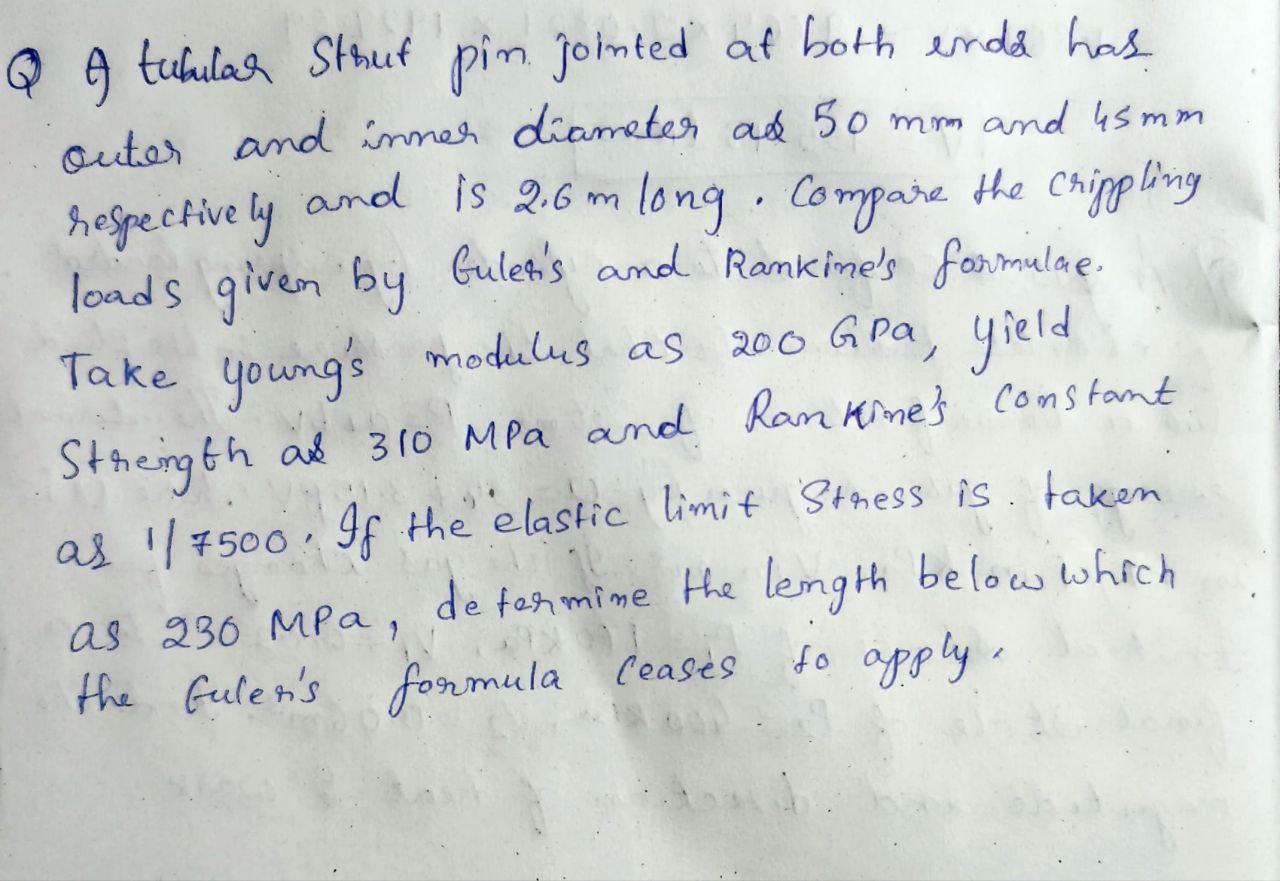 Q A tubular Strut pin jointed at both ends has
outer and inner diameter as 50 mm and 45 mm
respectively and is 2.6 m long. Compare the crippling
loads given by Euler's and Rankine's formulae.
Take young's modulus as 200 GPa, yield
Strength as 310 MPa and Rankine's constant
as 1/7500. If the elastic limit Stress is taken
as 230 MPa, determine the length below which
the Euler's formula ceases to apply.